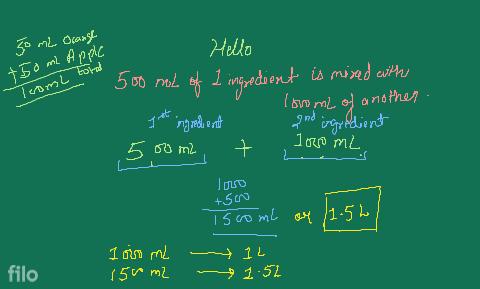 50 mL Orange
+50 mL Apple
100 mL total
Hello
500 mL of 1 ingredient is mixed with
1000 mL of another.
1st ingredient
2nd ingredient
500 mL + 1000 mL
1000
+500
1500 mL or 1.5L
1000 mL → 1L
1500 mL → 1.5L
filo